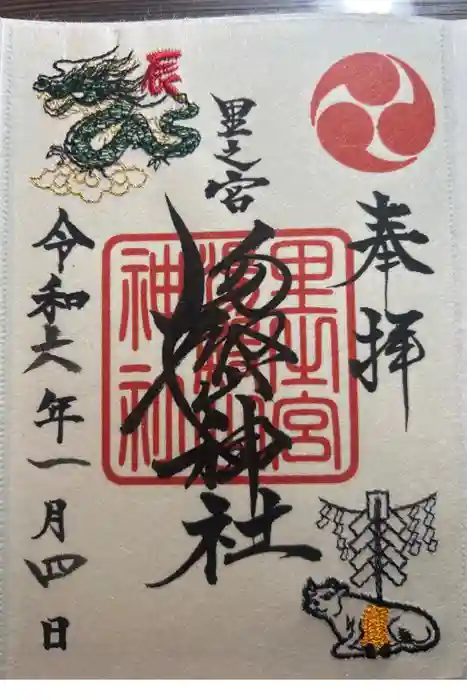 奉拝
里之宮
湯殿山神社
里之宮
湯殿山
神社
辰
令和六年一月四日